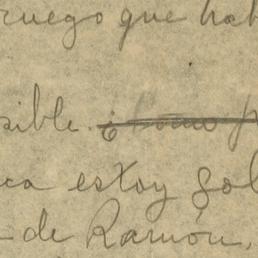 ruego que hab
sible. ¿ Como p
ca estoy gol
de Ramón,